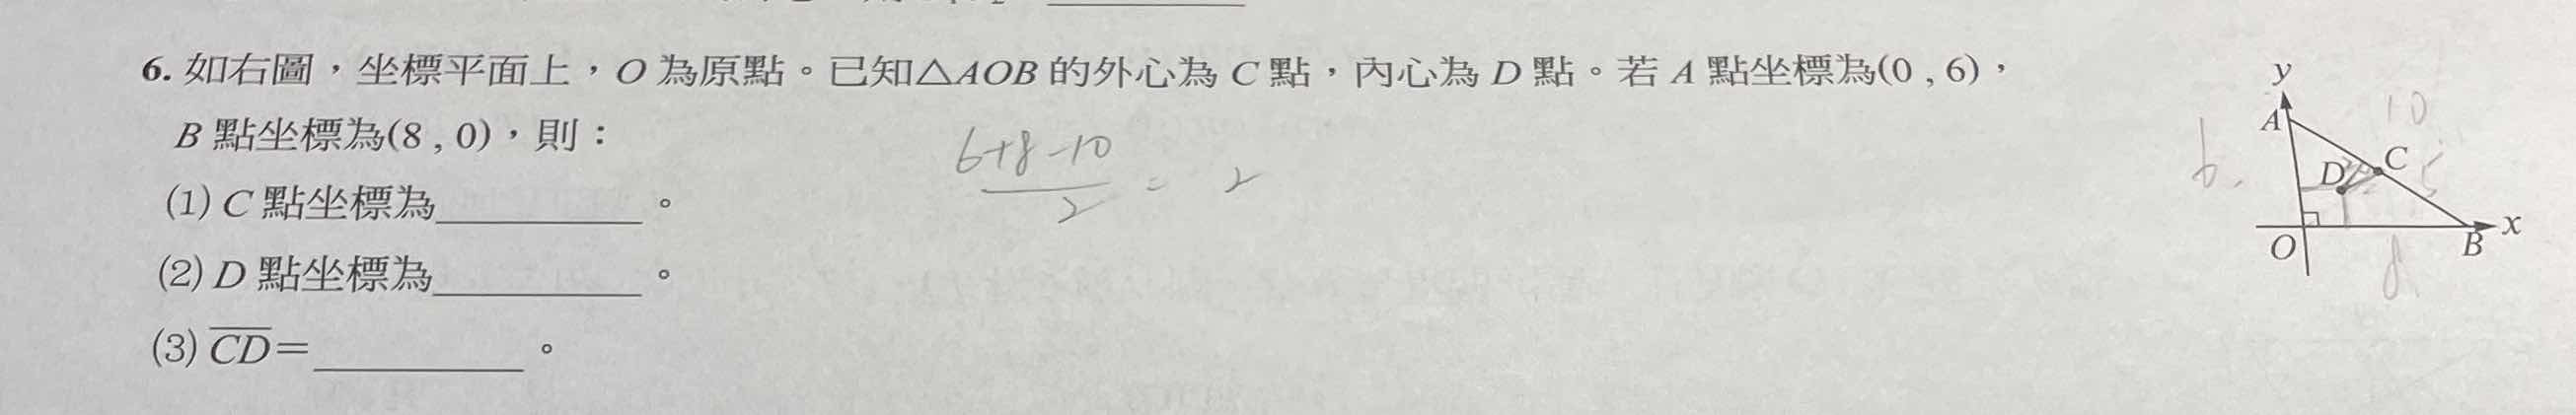 6. 如右圖，坐標平面上，O 為原點。已知△AOB 的外心為 C 點，內心為 D 點。若 A 點坐標為(0 , 6)，
B 點坐標為(8 , 0)，則：
(1) C 點坐標為__________。
(2) D 點坐標為__________。
(3) CD=__________。
6+8-10
2
= 2
y
A
10
6.
D
C
O
B
x
8